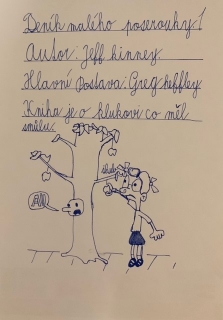 Deník malého poseroutky 1
Autor: Jeff kinney
Hlavní Postava: Greg heffley
Kniha je o klukovi co měl
smůlu.